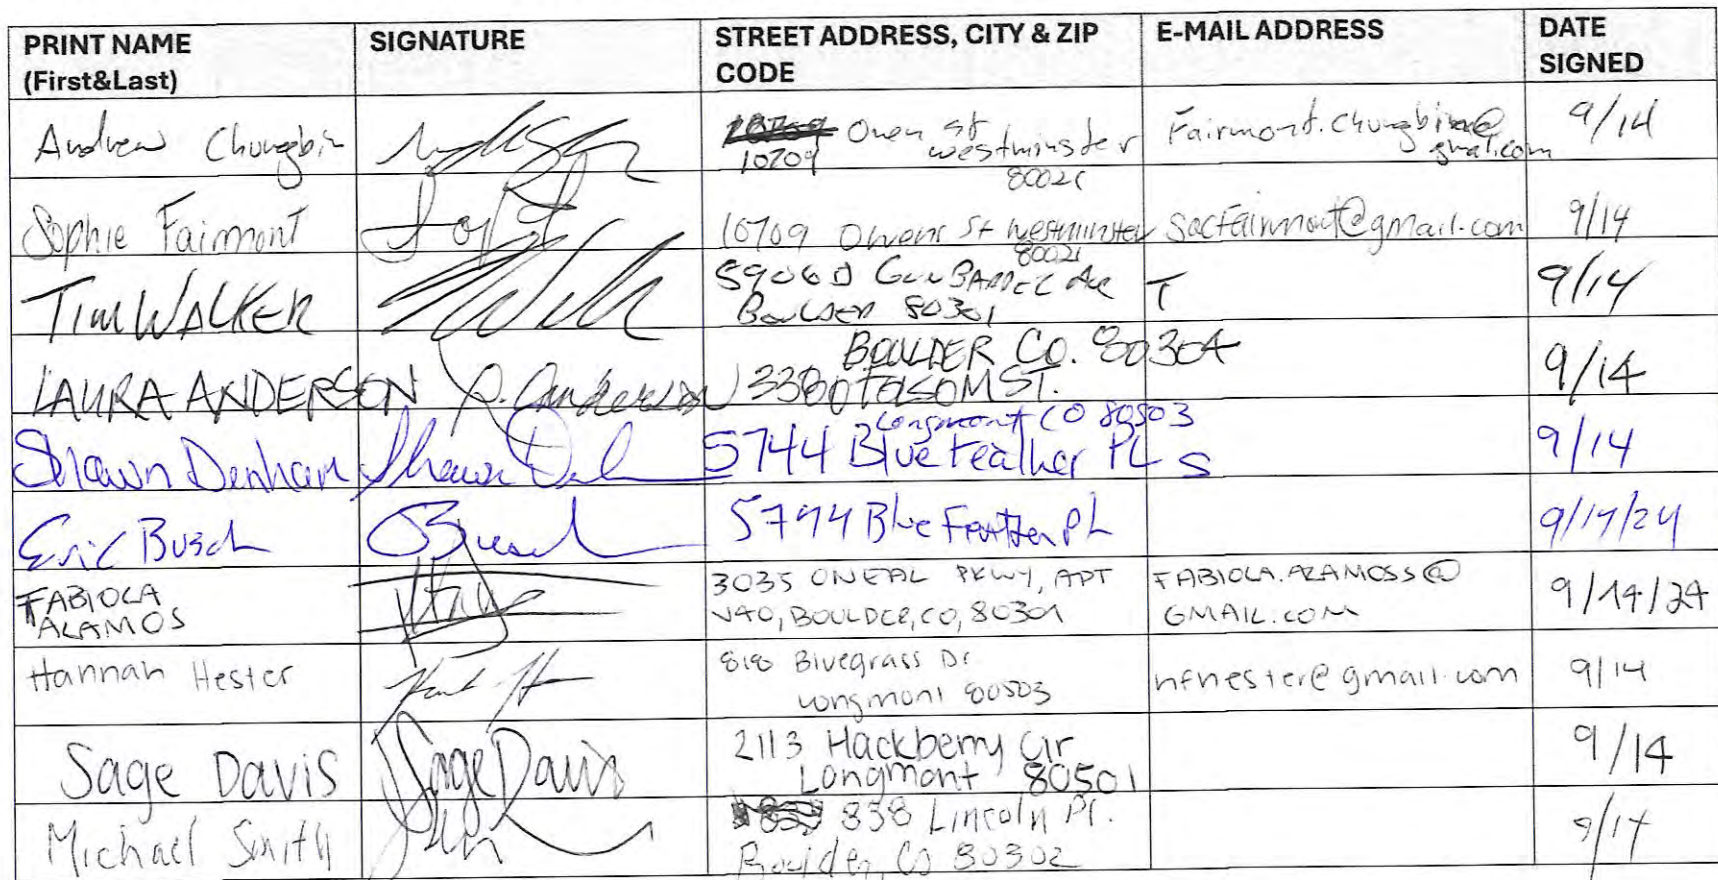 PRINT NAME
(First&Last)
SIGNATURE
STREET ADDRESS, CITY & ZIP
CODE
E-MAIL ADDRESS
DATE
SIGNED
Andrew Chungbin
10709 Owen St
Westminster
80021
Fairmont.Chungbin@
gmail.com
9/14
Sophie Fairmont
10709 Owens St Westminster
80021
Socfairmont@gmail.com
9/14
TIM WALKER
5906 D GUNBARREL Ave
BOULDER 80301
T
9/14
LAURA ANDERSON
L. Anderson
BOULDER CO. 80304
3380 FOLSOM ST.
9/14
Shawn Denham
Shawn
Longmont CO 80503
5744 Blue Feather PL
S
9/14
Eric Busch
Busch
5744 Blue Feather PL
9/14/24
FABIOLA
ALAMOS
3035 ONEAL PKWY, APT
V40, BOULDER, CO, 80301
FABIOLA.ALAMOSS@
GMAIL.COM
9/14/24
Hannah Hester
818 Bluegrass Dr
Longmont 80503
hfhester@gmail.com
9/14
Sage Davis
Sage Davis
2113 Hackberry Cir
Longmont 80501
9/14
Michael Smith
838 Lincoln Pl.
Boulder, CO 80302
9/14